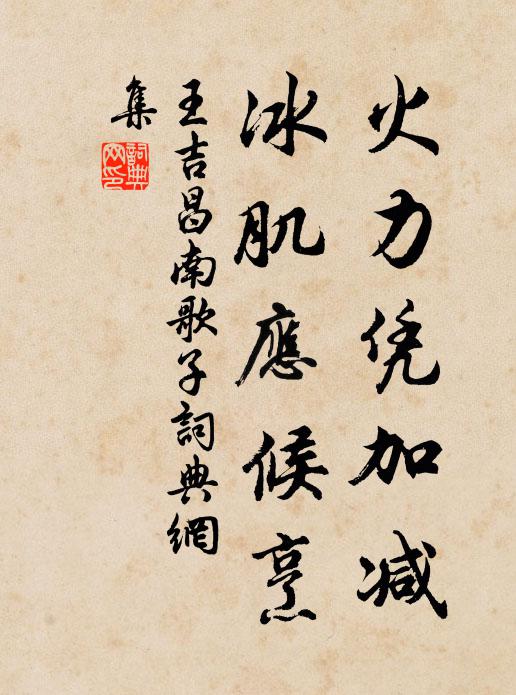 火力凭加减
冰肌應候烹
王吉昌南歌子詞典網
集
詞典
网印